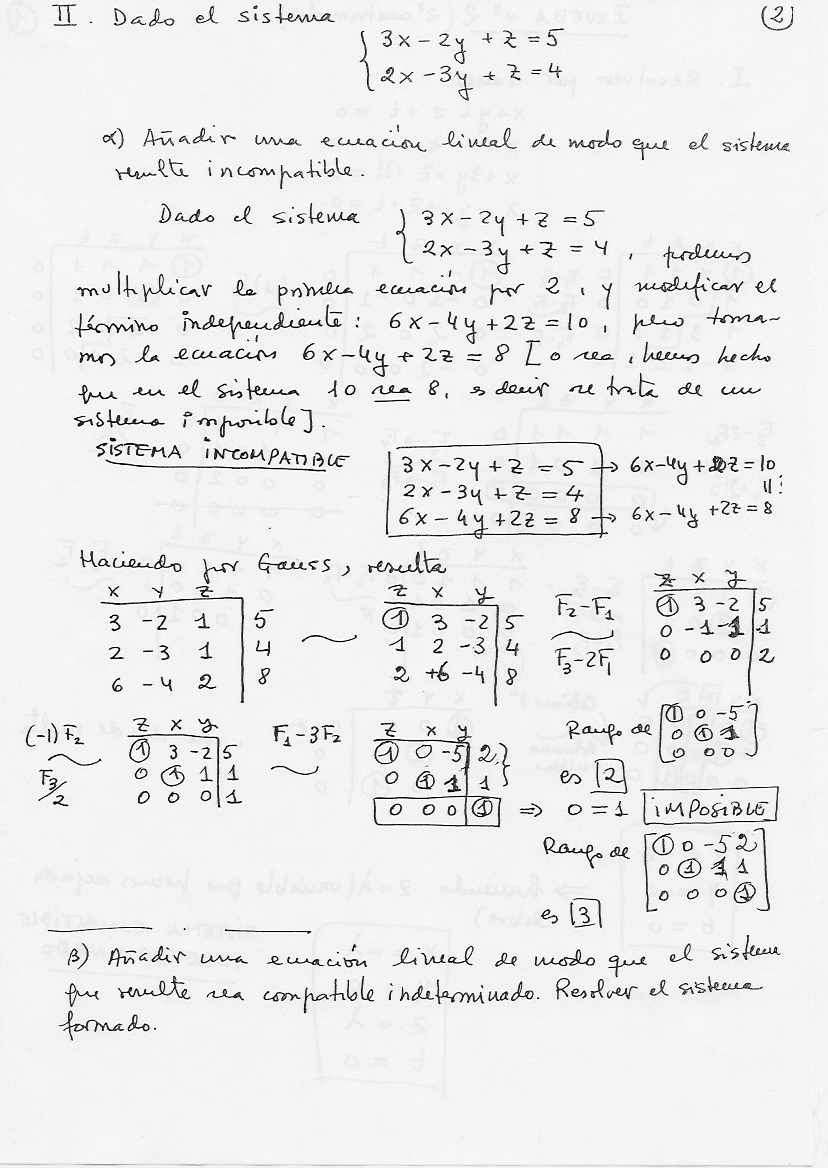 II. Dado el sistema (2)
{ 3x - 2y + z = 5
2x - 3y + z = 4
α) Añadir una ecuación lineal de modo que el sistema
resulte incompatible.
Dado el sistema { 3x - 2y + z = 5
2x - 3y + z = 4, podemos
multiplicar la primera ecuación por 2, y modificar el
término independiente: 6x - 4y + 2z = 10, pero toma-
mos la ecuación 6x - 4y + 2z = 8 [o sea, hemos hecho
que en el sistema 10 sea 8, es decir se trata de un
sistema imposible].
SISTEMA INCOMPATIBLE
3x - 2y + z = 5 → 6x - 4y + 2z = 10
2x - 3y + z = 4 ¿¡?
6x - 4y + 2z = 8 → 6x - 4y + 2z = 8
Haciendo por Gauss, resulta
x y z
3 -2 1 | 5
2 -3 1 | 4
6 -4 2 | 8
~
z x y
1 3 -2 | 5
1 2 -3 | 4
2 +6 -4 | 8
F2 - F1
~
F3 - 2F1
z x y
1 3 -2 | 5
0 -1 -1 | -1
0 0 0 | 2
(-1)F2
~
F3/2
z x y
1 3 -2 | 5
0 1 1 | 1
0 0 0 | 1
F1 - 3F2
~
z x y
1 0 -5 | 2
0 1 1 | 1
0 0 0 | 1 ⇒ 0 = 1 IMPOSIBLE
Rango de [1 0 -5
0 1 1
0 0 0]
es 2
Rango de [1 0 -5 2
0 1 1 1
0 0 0 1]
es 3
β) Añadir una ecuación lineal de modo que el sistema
que resulte sea compatible indeterminado. Resolver el sistema
formado.